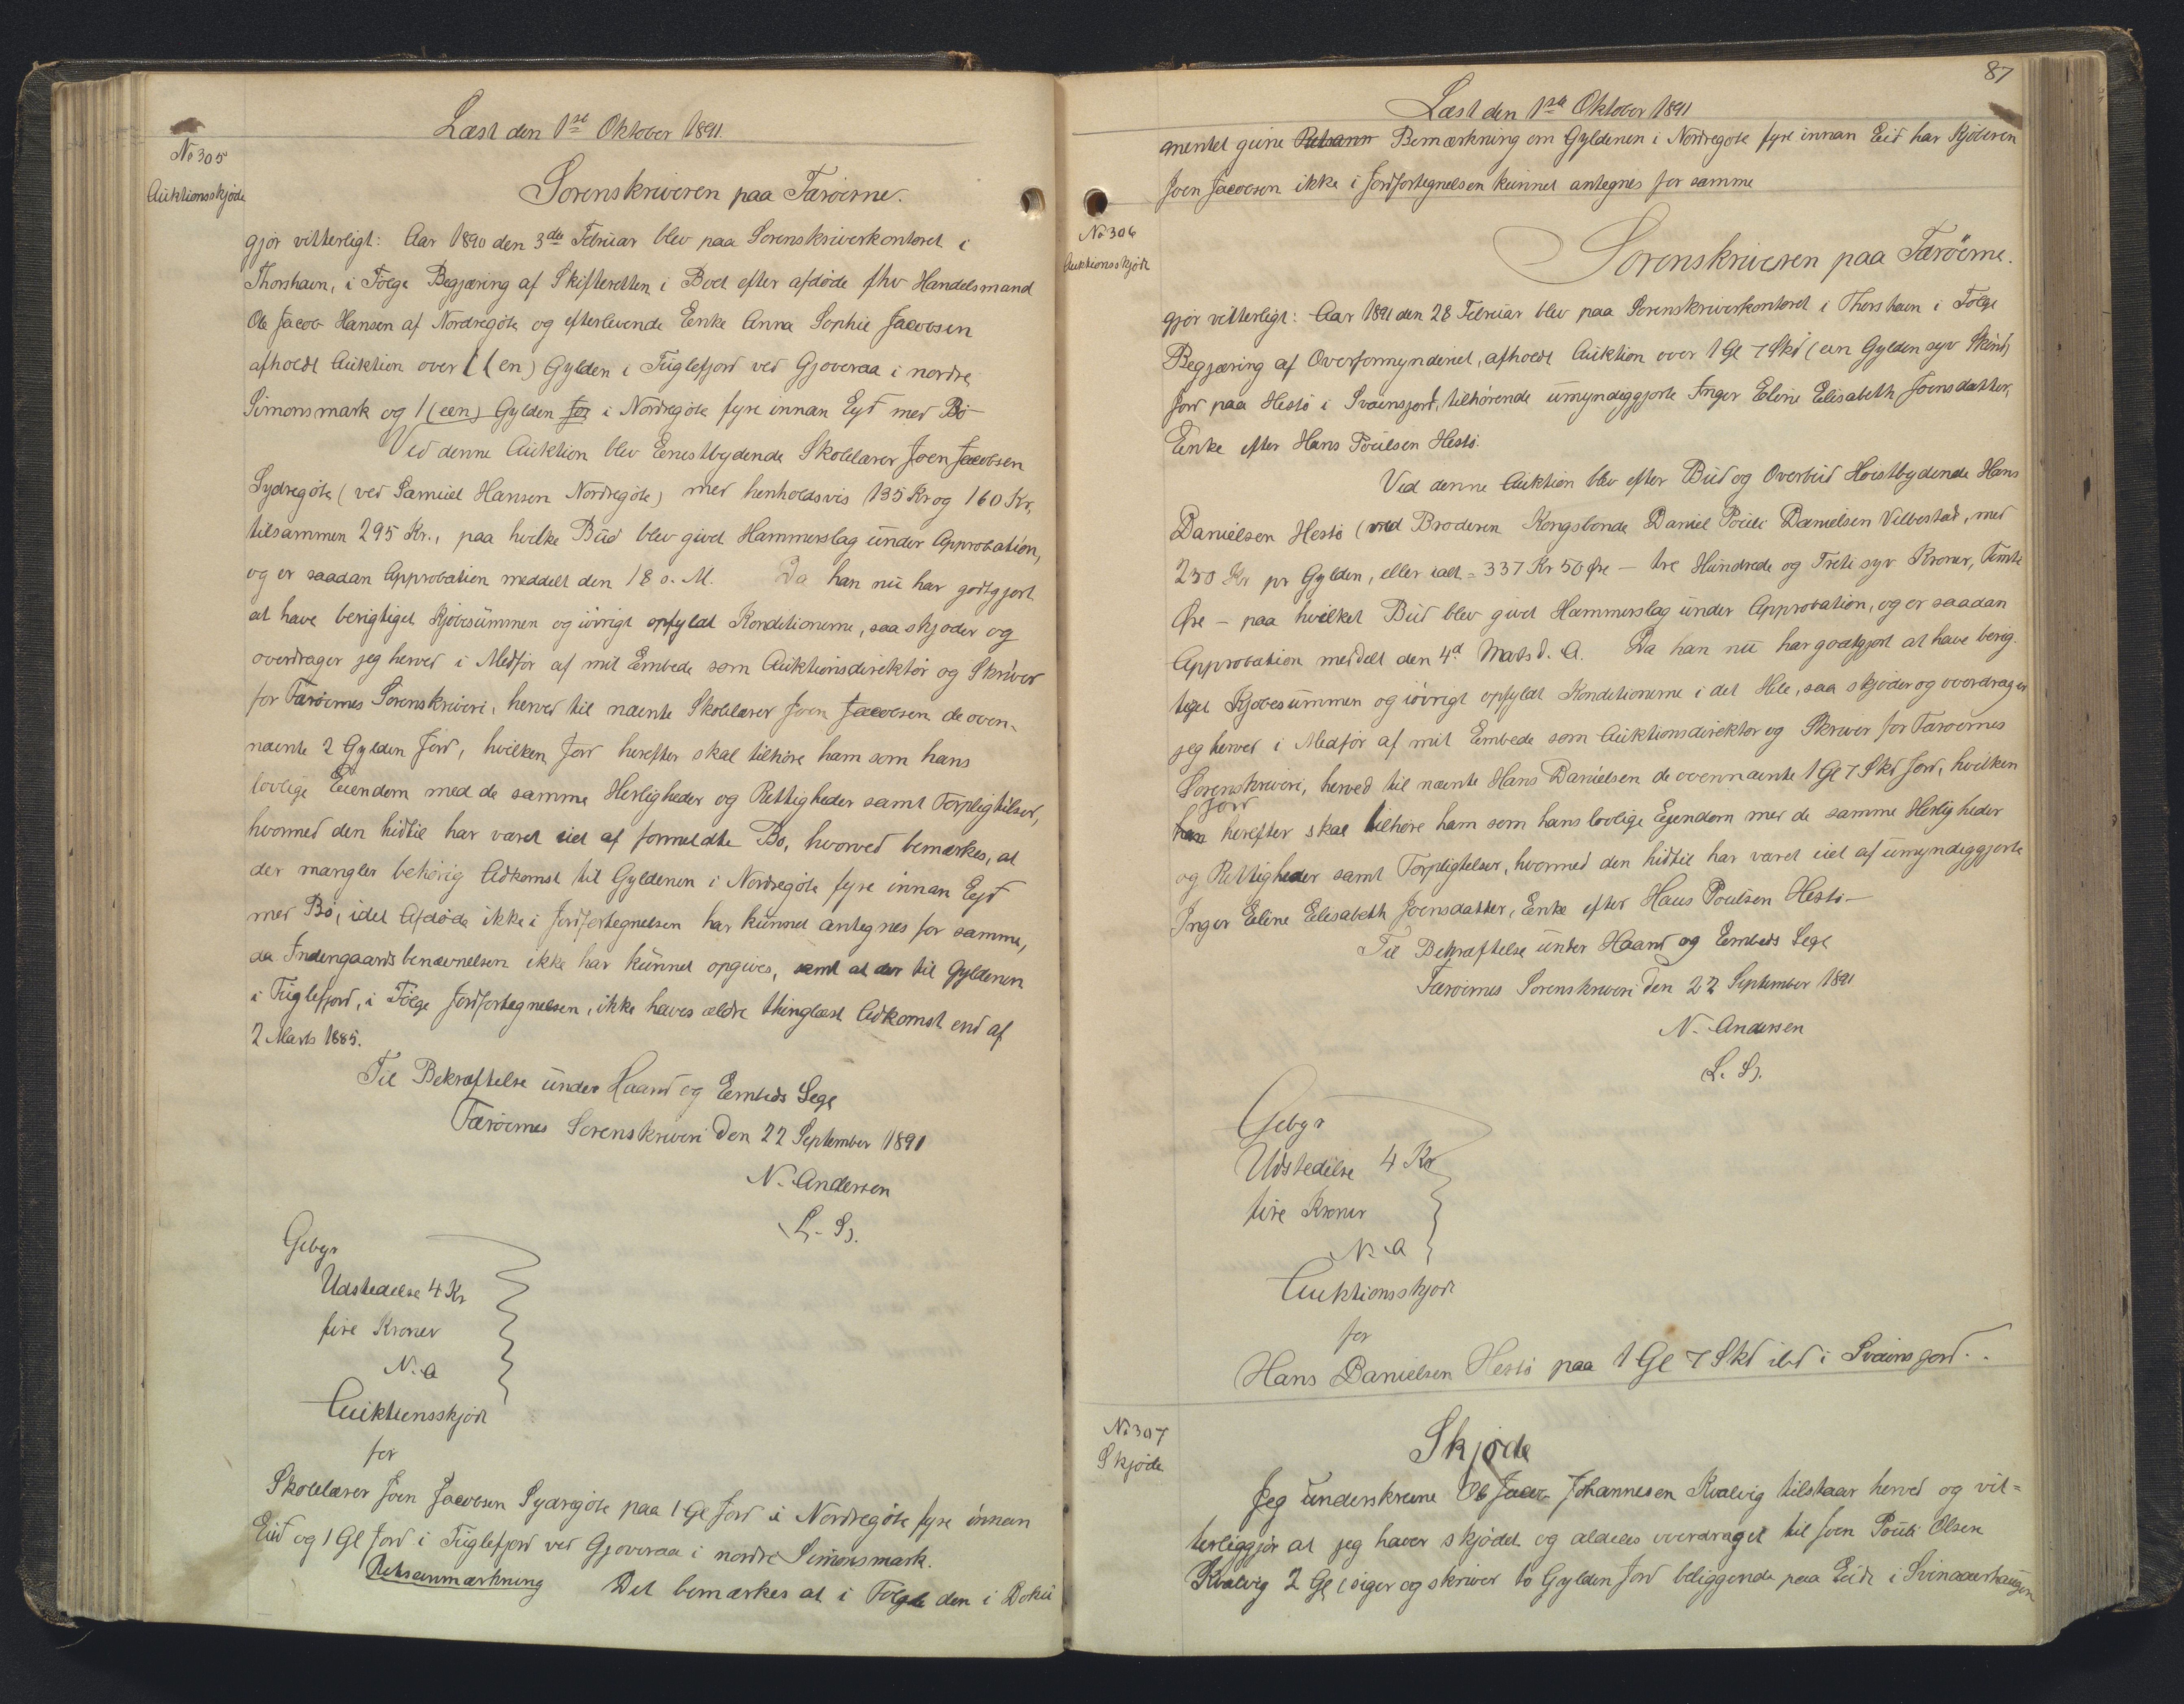 Læst den 1ste Oktober 1891.
No 305
Auktionsskjøde
Sorenskriveren paa Færøerne.
gjør vitterligt: Aar 1890 den 3die Februar blev paa Sorenskriverkontoret i
Thorshavn, i Følge Begjæring af Skifteretten i Boet efter afdøde fhv Handelsmand
Ole Jacob Hansen af Nordregøte og efterlevende Enke Anna Sophie Jacobsen
afholdt Auktion over 1 (en) Gylden i Fuglefjord ved Gjoveraa i nordre
Simonsmark og 1 (een) Gylden Jor i Nordregøte fyre innan Eyd med Bø
Ved denne Auktion blev Eenestbydende Skolelærer Joen Jacobsen
Sydregøte (ved Samuel Hansen Nordregøte) med henholdsvis 135 Kr og 160 Kr,
tilsammen 295 Kr., paa hvilke Bud blev givet Hammerslag under Approbation,
og er saadan Approbation meddelt den 18 s. M. Da han nu har godtgjort
at have berigtiget Kjøbesummen og iøvrigt opfyldt Konditionerne, saa skjøder og
overdrager jeg herved i Medfør af mit Embede som Auktionsdirektør og Skriver
for Færøernes Sorenskriveri, herved til nævnte Skolelærer Joen Jacobsen de oven-
nævnte 2 Gylden Jord, hvilken Jord herefter skal tilhøre ham som hans
lovlige Eiendom med de samme Herligheder og Rettigheder samt Forpligtelser,
hvormed den hidtil har været eiet af formeldte Bo, hvorved bemærkes, at
der mangler behørig Adkomst til Gyldenen i Nordregøte fyre innan Eyd
med Bø, idet Afdøde ikke i Jordfortegnelsen har kunnet antegnes for samme,
da Indengaardsbenævnelsen ikke har kunnet opgives, samt at der til Gyldenen
i Fuglefjord, i Følge Jordfortegnelsen, ikke haves ældre thinglæst Adkomst end af
2 Marts 1885.
Til Bekræftelse under Haand og Embeds Segl
Færøernes Sorenskriveri den 22 September 1891
N. Andersen
L. S.
Gebyr
Udstedelse 4 Kr
fire Kroner
N. A
Auktionsskjøde
for
Skolelærer Joen Jacobsen Sydregøte paa 1 Gl Jord i Nordregøte fyre innan
Eid og 1 Gl Jord i Fuglefjord ved Gjoveraa i nordre Simonsmark.
Retsanmærkning Det bemærkes at i Følge den i Doku
87
Læst den 1ste Oktober 1891
mentet givne Retsanm Bemærkning om Gyldenen i Nordregøte fyre innan Eid har Kjøberen
Joen Jacobsen ikke i Jordfortegnelsen kunnet antegnes for samme
No 306
Auktionsskjøde
Sorenskriveren paa Færøerne.
gjør vitterligt: Aar 1891 den 28 Februar blev paa Sorenskriverkontoret i Thorshavn i Følge
Begjæring af Overformynderiet, afholdt Auktion over 1 Gl 7 Skd (een Gylden syv Skind)
Jord paa Hestø i Svainsjord, tilhørende umyndiggjorte Inger Eline Elisabeth Joensdatter,
Enke efter Hans Poulsen Hestø.
Ved denne Auktion blev efter Bud og Overbud Høistbydende Hans
Danielsen Hestø (ved Broderen Kongsbonde Daniel Pouli Danielsen Velbestad, med
250 Kr pr Gylden, eller ialt = 337 Kr 50 Øre — tre Hundrede og Treti syv Kroner, Femti
Øre — paa hvilket Bud blev givet Hammerslag under Approbation, og er saadan
Approbation meddelt den 4d Marts d. A. Da han nu har godtgjort at have berig-
tiget Kjøbesummen og iøvrigt opfyldt Konditionerne i det Hele, saa skjøder og overdrager
jeg herved i Medfør af mit Embede som Auktionsdirektør og Skriver for Færøernes
Sorenskriveri, herved til nævnte Hans Danielsen de ovennævnte 1 Gl 7 Skd Jord, hvilken
Jord
han herefter skal tilhøre ham som hans lovlige Ejendom med de samme Herligheder
og Rettigheder samt Forpligtelser, hvormed den hidtil har været eiet af umyndiggjorte
Inger Eline Elisabeth Joensdatter, Enke efter Hans Poulsen Hestø —
Til Bekræftelse under Haand og Embeds Segl
Færøernes Sorenskriveri den 22 September 1891
N. Andersen
L. S.
Gebyr
Udstedelse 4 Kr
fire Kroner
N. A
Auktionsskjøde
for
Hans Danielsen Hestø paa 1 Gl 7 Skd ibd i Svainsjord.
No 307
Skjøde
Skjøde
Jeg underskrevne Ole Jacob Johannesen Kvalvig tilstaar herved og vit=
terliggjør at jeg haver skjødet og aldeles overdraget til Joen Pouli Olsen
Kvalvig 2 Gl (siger og skriver to Gylden Jord beliggende paa Eide i